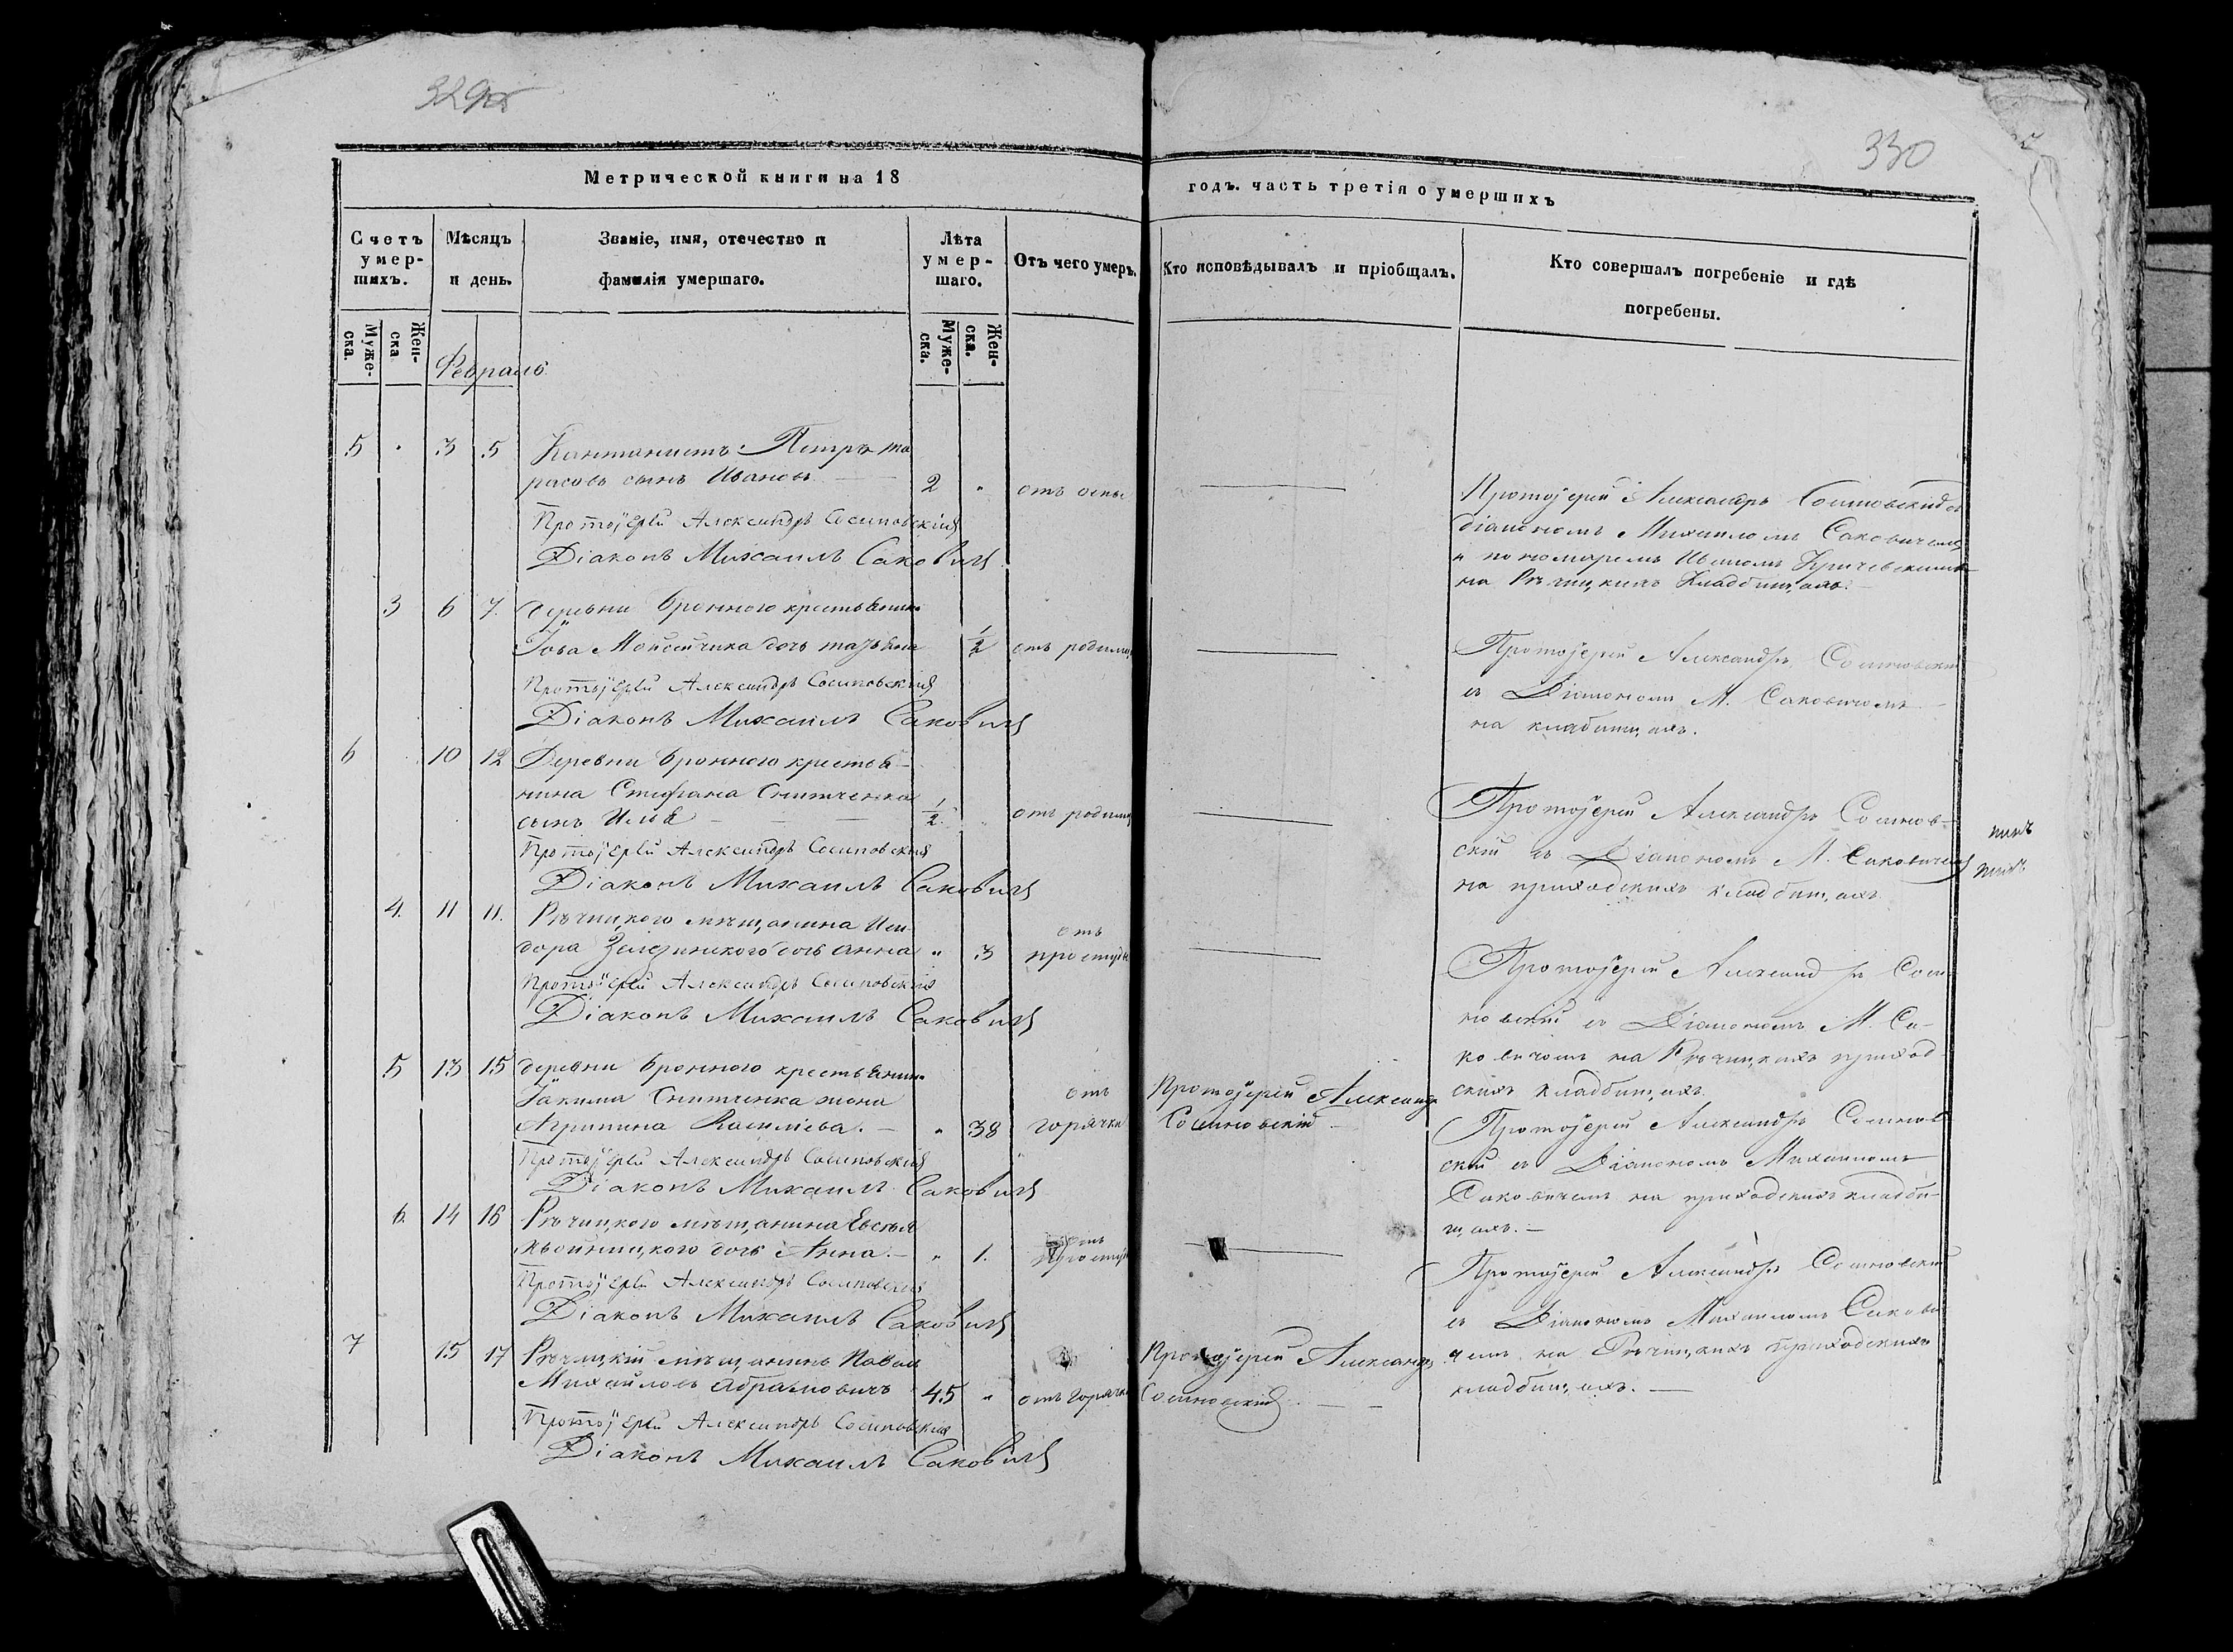 329
330
Метрической книги на 18
годъ. часть третія о умершихъ
Счетъ умер-шихъ.
Мѣсяцъ и день.
Званіе, имя, отечество и фамилія умершаго.
Лѣта умер-шаго.
Отъ чего умеръ.
Кто исповѣдывалъ и пріобщалъ.
Кто совершалъ погребеніе и гдѣ погребены.
Муже-ска.
Жен-ска
Муже-ска.
Жен-ска.
Февраль
5 3 5 Кантонистъ Петръ Та
расовъ сынъ Ивановъ 2 " отъ оспы
Протоіерей Александръ Сосиновскій
Діаконъ Михаилъ Саковичъ
Протоіерей Александръ Сосиновскій съ
діакономъ Михаиломъ Саковичемъ
и пономаремъ Кричевскимъ
на Рѣчицкихъ кладбищахъ.
3 6 7. деревни Бронного крестьянина
Іова дочь Татьяна 1/2 отъ родимца
Протоіерей Александръ Сосиновскій
Діаконъ Михаилъ Саковичъ
Протоіерей Александръ Сосиновскій
съ Діакономъ М. Саковичемъ
на кладбищахъ.
6 10 12 Деревни Бронного крестья-
нина Стефана Снитченка
сынъ Илья 1/2 отъ родимца
Протоіерей Александръ Сосиновскій
Діаконъ Михаилъ Саковичъ
Протоіерей Александръ Сосинов-
скій съ Діакономъ М. Саковичемъ
на приходскихъ кладбищахъ
4. 11 11. Рѣчицкого мѣщанина Иси-
дора дочь Анна " 3 отъ простуды
Протоіерей Александръ Сосиновскій
Діаконъ Михаилъ Саковичъ
Протоіерей Александръ Соси-
новскій съ Діакономъ М. Са-
ковичемъ на Рѣчицкихъ приход-
скихъ кладбищахъ.
5 13 15 деревни Бронного крестьянина
Іакима Снитченка жена
Агрипина Васильева. " 38 отъ горячки
Протоіерей Александръ
Сосиновскій
Протоіерей Александръ Сосиновскій
Діаконъ Михаилъ Саковичъ
Протоіерей Александръ Сосинов-
скій съ Діакономъ Михаиломъ
Саковичемъ на приходскихъ кладби-
щахъ.
6. 14 16 Рѣчицкого мѣщанина
дочь Анна. " 1. отъ простуды
Протоіерей Александръ Сосиновскій
Діаконъ Михаилъ Саковичъ
Протоіерей Александръ Сосиновскій
съ Діакономъ Михаиломъ Сакови
чемъ на Рѣчицкихъ приходскихъ
кладбищахъ.
7 15 17 Рѣчицкій мѣщанинъ Павелъ
Михайловъ Абрамовичъ 45 " отъ горячки
Протоіерей Александръ
Сосиновскій
Протоіерей Александръ Сосиновскій
Діаконъ Михаилъ Саковичъ